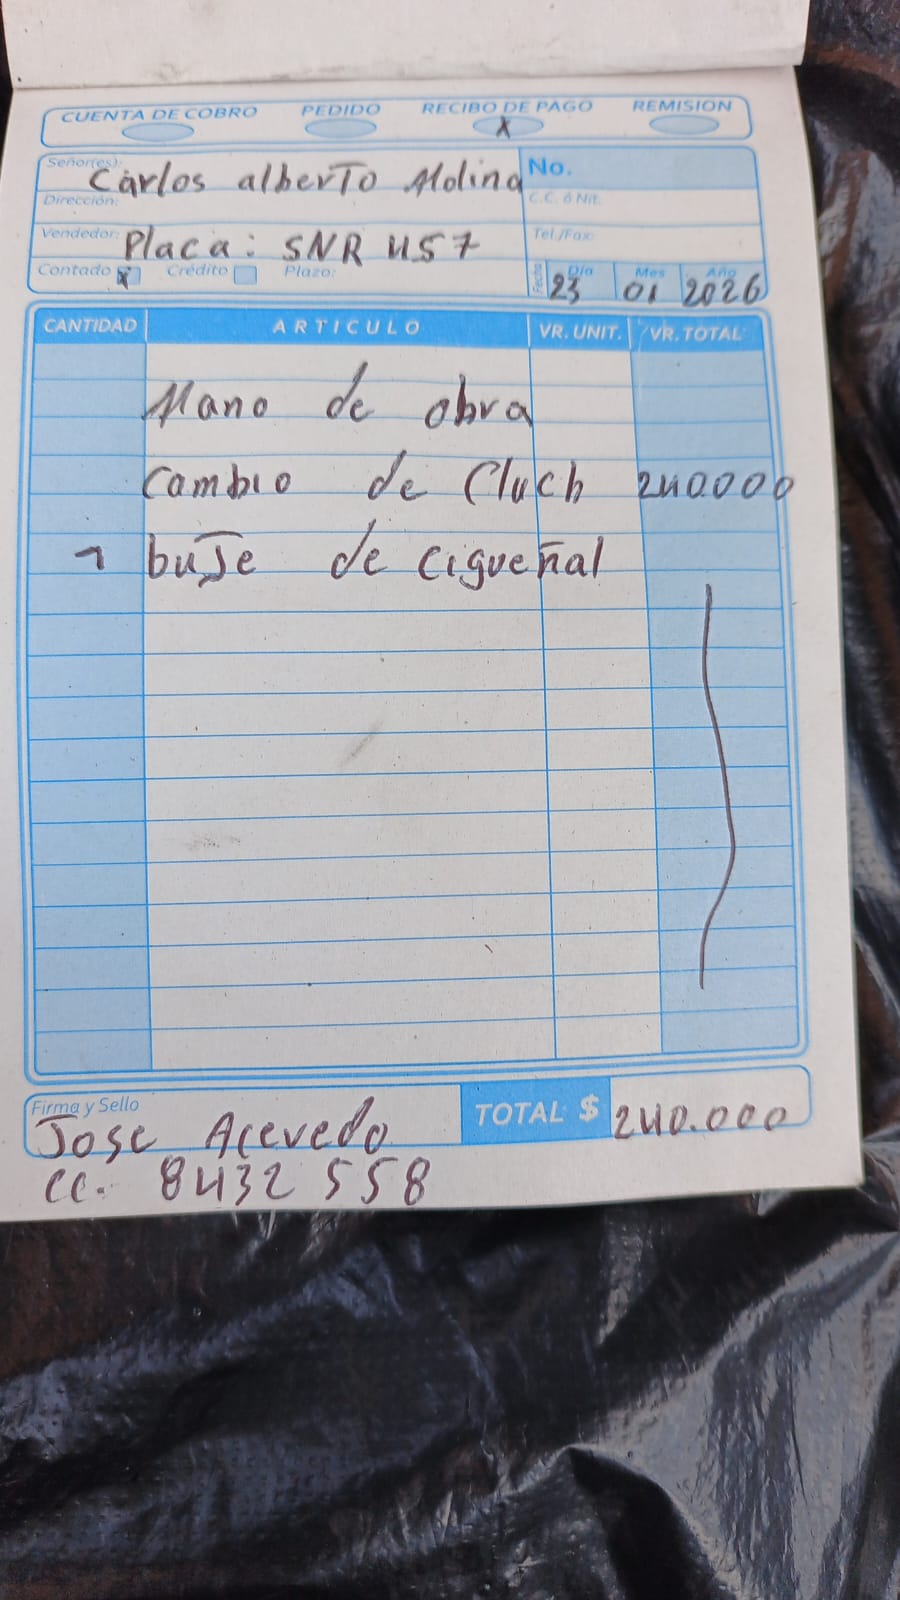 CUENTA DE COBRO PEDIDO RECIBO DE PAGO REMISION
X
Señor(es): Carlos alberto Molina No.
Dirección: C.C. ó Nit.
Vendedor: Placa: SNR 457 Tel./Fax:
Contado X Crédito Plazo: Fecha Día 23 Mes 01 Año 2026
CANTIDAD ARTICULO VR. UNIT. VR. TOTAL
Mano de obra
Cambio de Cluch 240.000
1 buje de cigueñal
Firma y Sello
Jose Acevedo TOTAL $ 240.000
CC. 8432 558